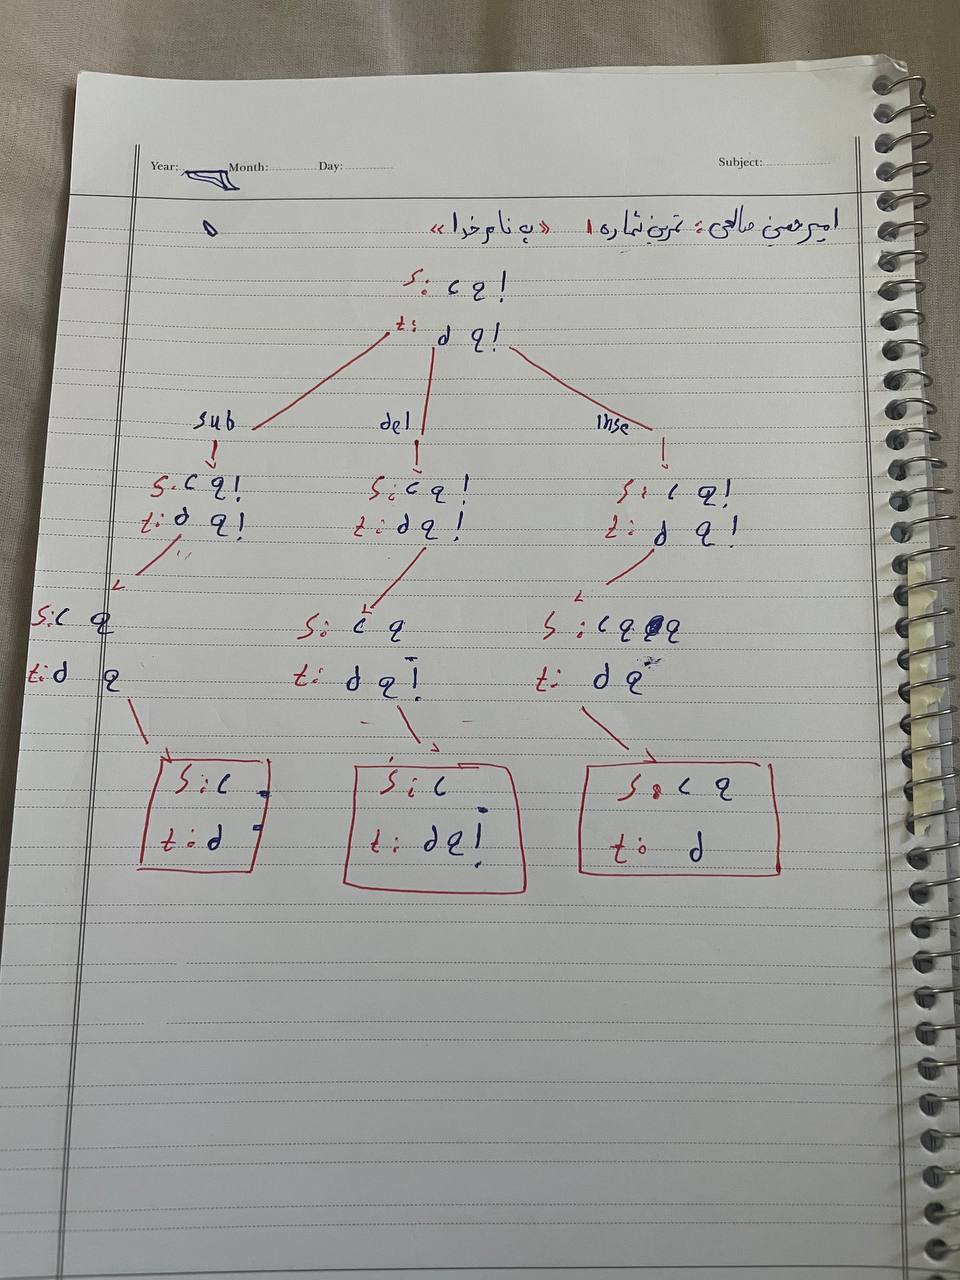 Year: Month: Day: Subject:
امیرحسین صالحی : تمرین شماره ۱ «به نام خدا»
s: c q !
t: d q !
sub del inse
s: c q ! s: c q ! s: c q !
t: d q ! t: d q ! t: d q !
s: c q s: c q s: c q q
t: d q t: d q ! t: d q
s: c s: c s: c q
t: d t: d q ! t: d